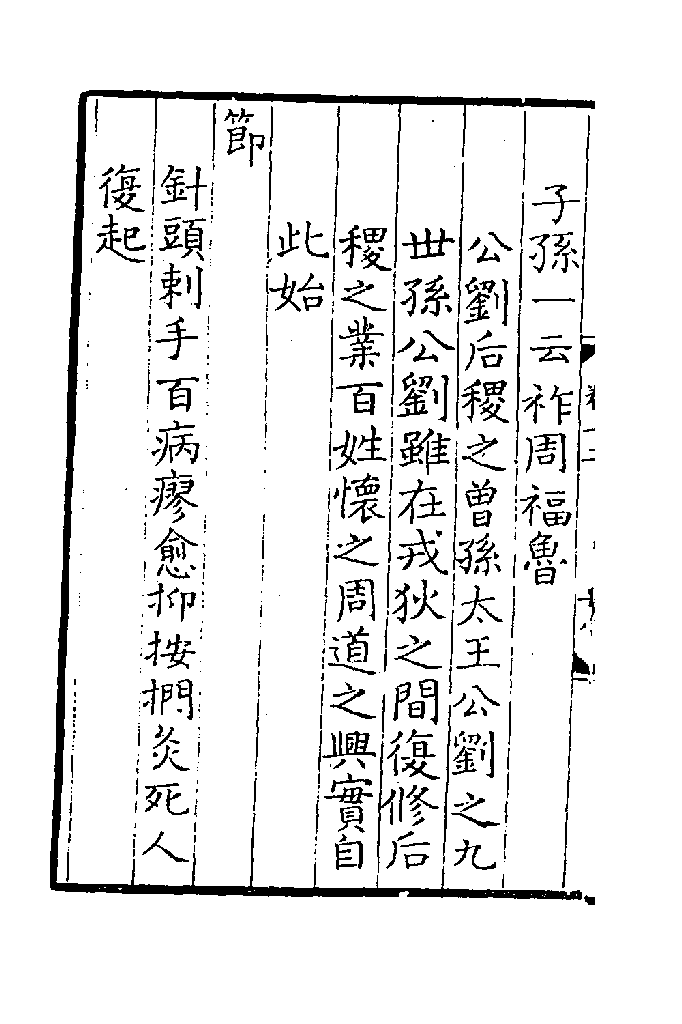 子孫一云祚周福魯
公劉后稷之曾孫太王公劉之九
世孫公劉雖在戎狄之間復修后
稷之業百姓懷之周道之興實自
此始
節
針頭刺手百病瘳愈抑按捫灸死人
復起